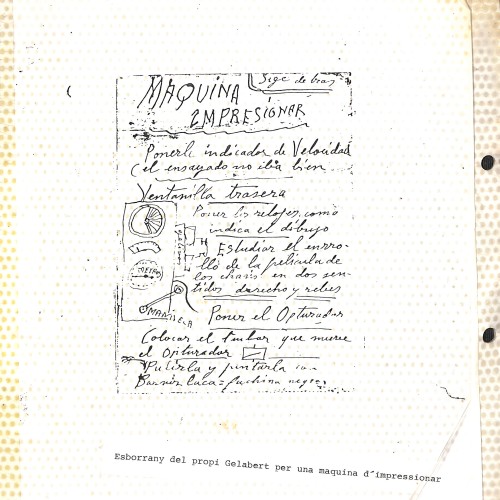 Sige de tras
MAQUINA
IMPRESIONAR
Ponerle indicador de Velocidad
(el ensayado no iba bien
Ventanilla trasera
Poner los relojes como
indica el dibujo
Estudiar el enrro-
llo de la pelicula de
los chasis en dos sen-
tidos derecho y rebes
METROS
MANIVELA
Poner el Opturador
Colocar el tambor que mueve
el Opturador
Pulirla y pintarla con
Barniz Laca = fuchina negro
Esborrany del propi Gelabert per una maquina d´impressionar